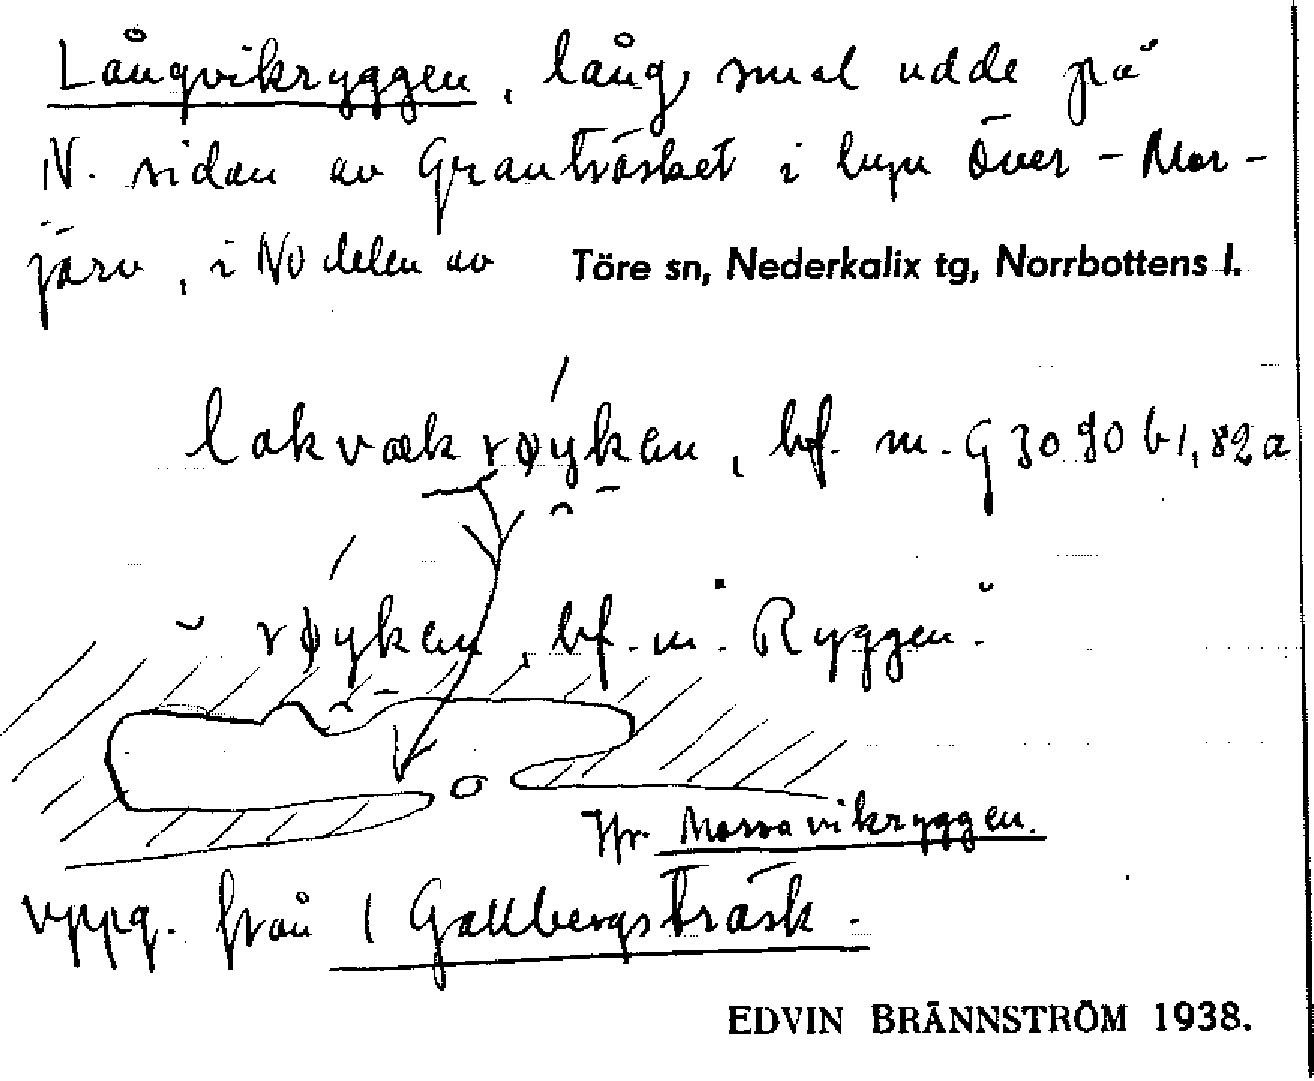 Långvikryggen, lång, smal udde på
N. sidan av Granträsket i byn Över-Mor-
järv, i NO delen av Töre sn, Nederkalix tg, Norrbottens l.
lakvækrøyken, bf. m.
røyken, bf. m. Ryggen.
Jfr Morravikryggen.
uppg. från 1 Gallbergsträsk.
EDVIN BRÄNNSTRÖM 1938.